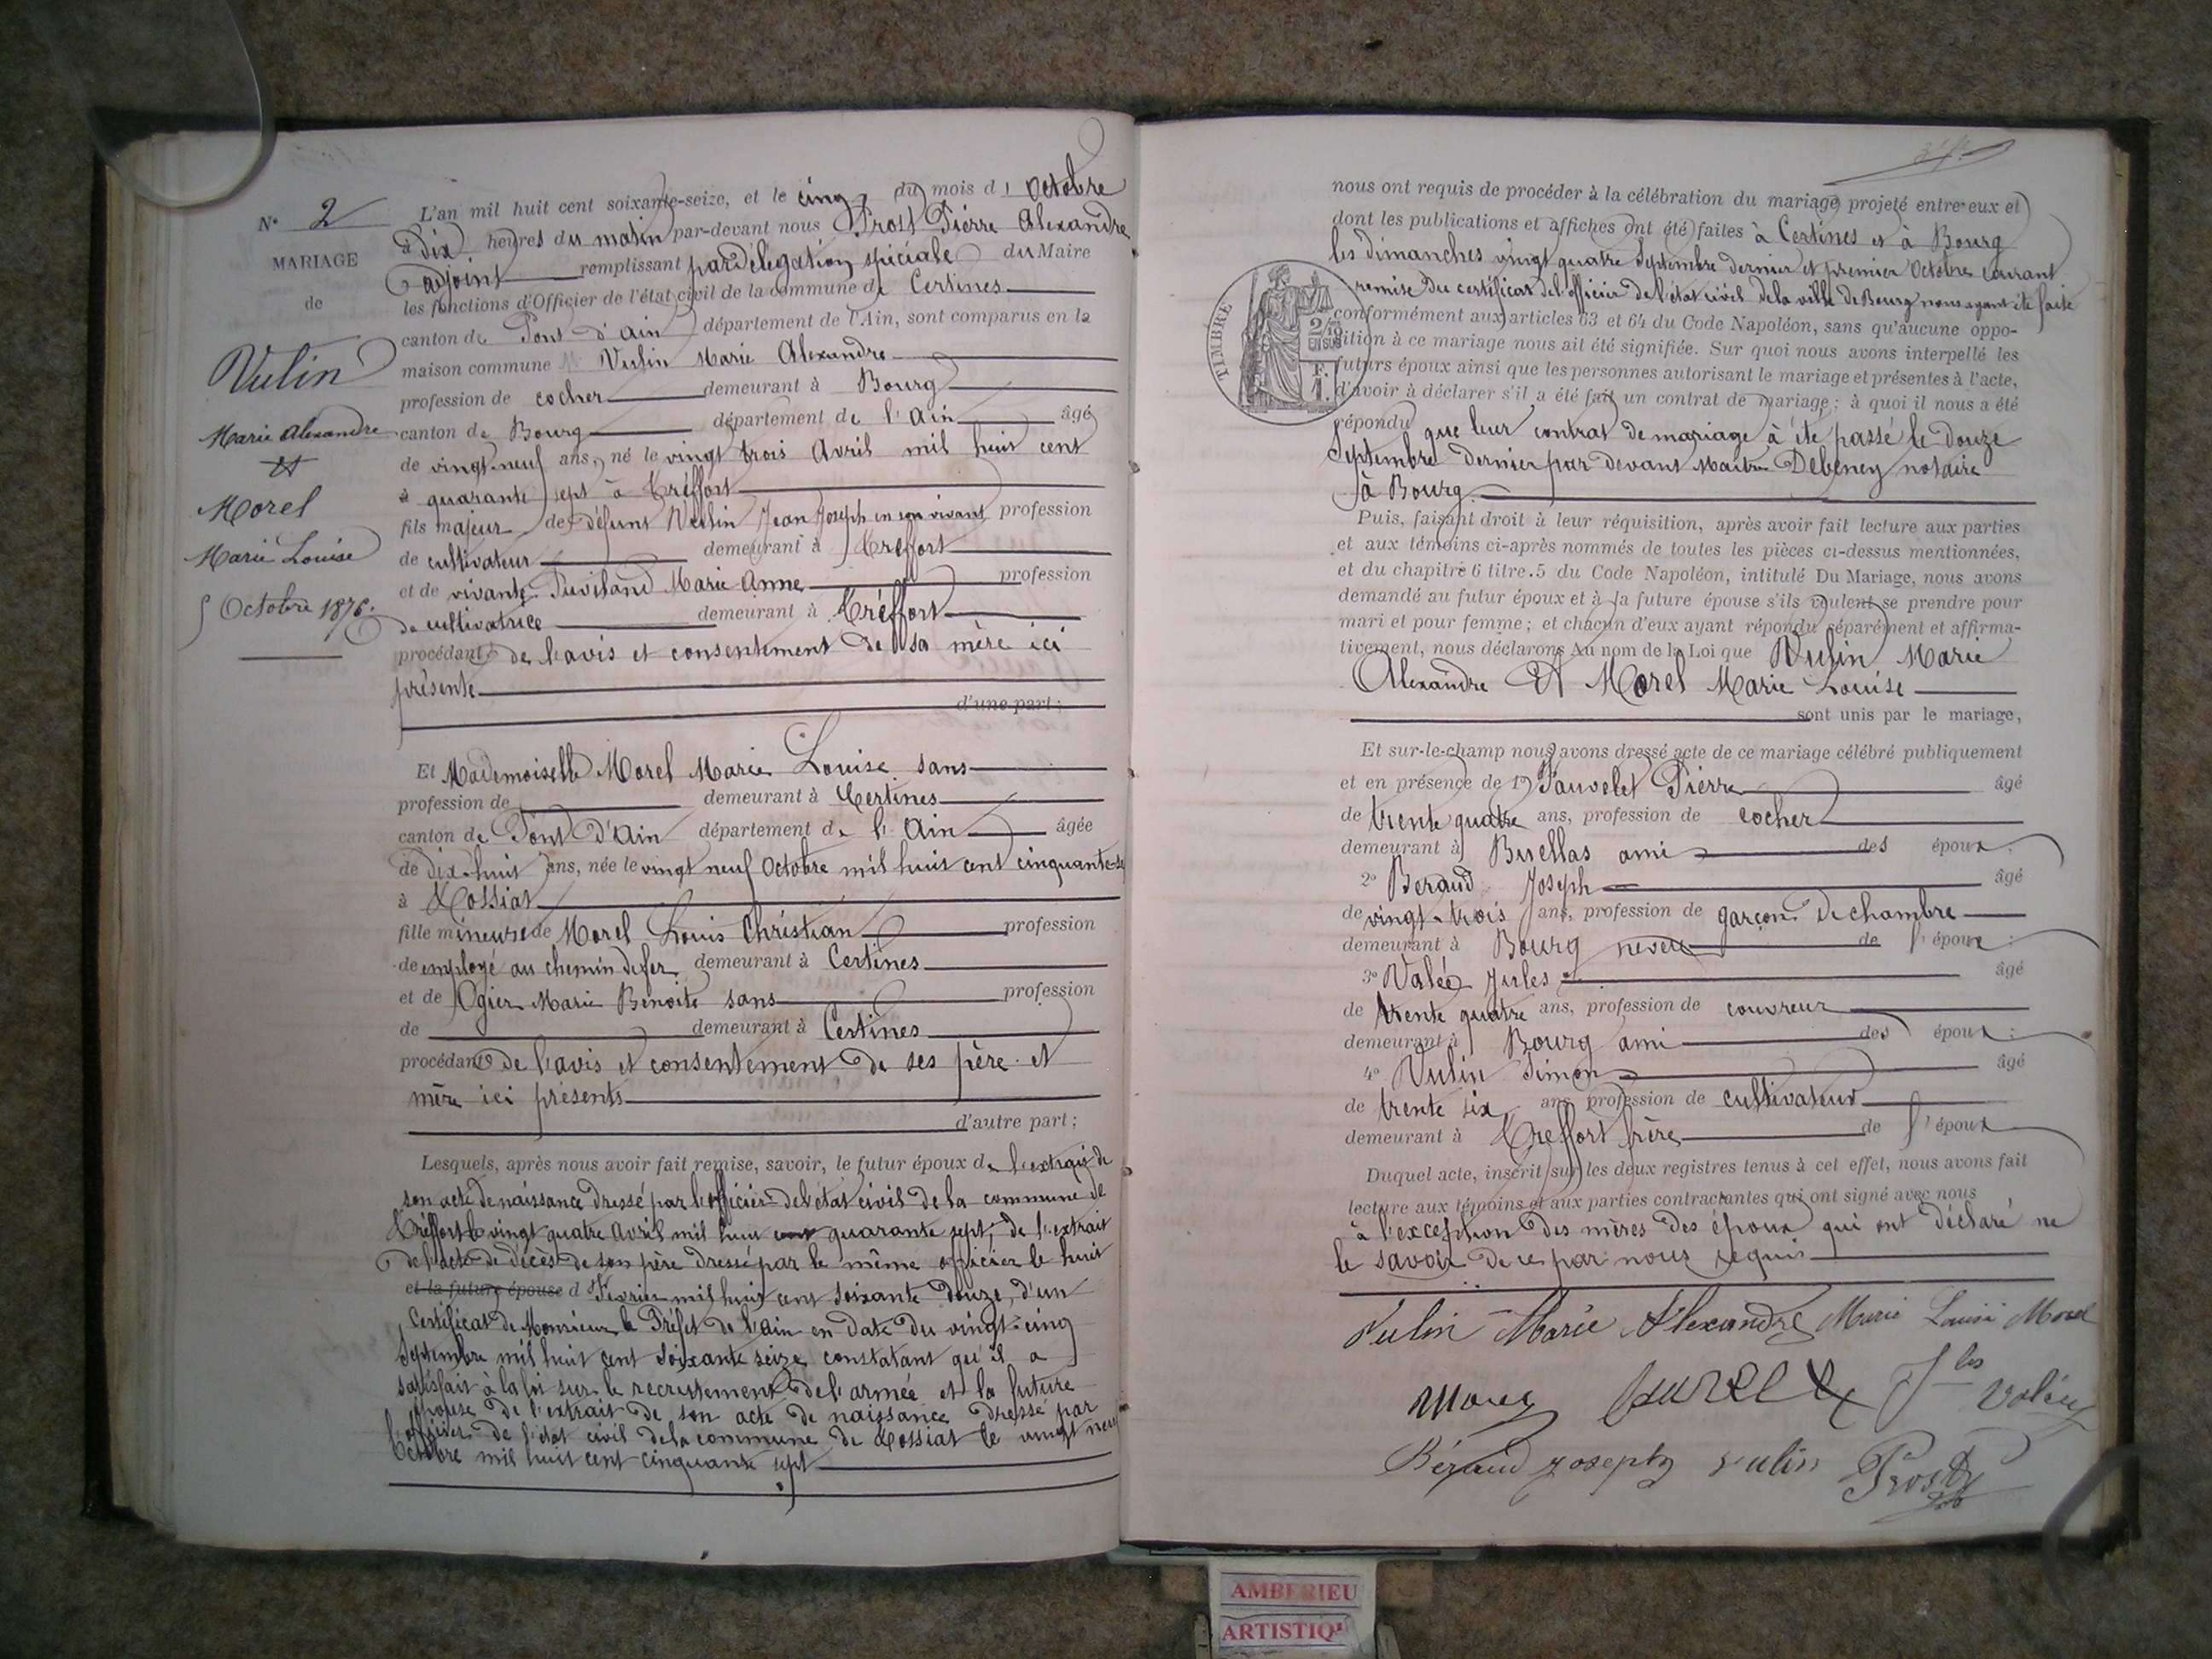 N° 2
MARIAGE
de
Vulin
Marie Alexandre
Et
Morel
Marie Louise
5 Octobre 1876.
L'an mil huit cent soixante-seize, et le cinq du mois d' Octobre
à dix heures du matin par-devant nous Prost Pierre Alexandre
adjoint remplissant par délégation spéciale du Maire
les fonctions d'Officier de l'état civil de la commune de Certines
canton de Pont d'Ain département de l'Ain, sont comparus en la
maison commune M. Vulin Marie Alexandre
profession de cocher demeurant à Bourg
canton de Bourg département de l'Ain âgé
de vingt-neuf ans, né le vingt trois Avril mil huit cent
quarante sept à Tréffort
fils majeur de défunt Vulin Jean Joseph en son vivant profession
de cultivateur demeurant à Treffort
et de vivante Marie Anne profession
de cultivatrice demeurant à Tréffort
procédant de l'avis et consentement de sa mère ici
présente
d'une part ;
Et Mademoiselle Morel Marie Louise sans
profession de demeurant à Certines
canton de Pont d'Ain département de l'Ain âgée
de dix-huit ans, née le vingt neuf Octobre mil huit cent cinquante-se
à Rossiat
fille mineure de Morel Louis Christian profession
de employé au chemin de fer demeurant à Certines
et de Ogier Marie Benoite sans profession
de demeurant à Certines
procédant de l'avis et consentement de ses père et
mère ici présents
d'autre part ;
Lesquels, après nous avoir fait remise, savoir, le futur époux de l'extrait de
son acte de naissance dressé par l'officier de l'état civil de la commune de
Tréffort le vingt quatre Avril mil huit cent quarante sept, de l'extrait
de l'acte de décès de son père dressé par le même officier le huit
et la future épouse d Février mil huit cent soixante douze, d'un
Certificat de Monsieur le Préfet de l'Ain en date du vingt-cinq
Septembre mil huit cent soixante seize constatant qu'il a
satisfait à la loi sur le recrutement de l'armée et la future
épouse de l'extrait de son acte de naissance dressé par
l'officier de l'état civil de la commune de Rossiat le vingt neuf
Octobre mil huit cent cinquante sept
nous ont requis de procéder à la célébration du mariage projeté entre eux et
dont les publications et affiches ont été faites à Certines et à Bourg
les dimanches vingt quatre Septembre dernier et premier Octobre courant
remise du certificat de l'officier de l'état civil de la ville de Bourg nous ayant été faite
conformément aux articles 63 et 64 du Code Napoléon, sans qu'aucune oppo-
sition à ce mariage nous ait été signifiée. Sur quoi nous avons interpellé les
futurs époux ainsi que les personnes autorisant le mariage et présentes à l'acte,
d'avoir à déclarer s'il a été fait un contrat de mariage ; à quoi il nous a été
répondu que leur contrat de mariage à été passé le douze
Septembre dernier par devant Maître Debeney notaire
à Bourg.
TIMBRE
2/10
EN SUS
F.
1.
Puis, faisant droit à leur réquisition, après avoir fait lecture aux parties
et aux témoins ci-après nommés de toutes les pièces ci-dessus mentionnées,
et du chapitre 6 titre.5 du Code Napoléon, intitulé Du Mariage, nous avons
demandé au futur époux et à la future épouse s'ils veulent se prendre pour
mari et pour femme ; et chacun d'eux ayant répondu séparément et affirma-
tivement, nous déclarons Au nom de la Loi que Vulin Marie
Alexandre Et Morel Marie Louise
sont unis par le mariage,
Et sur-le-champ nous avons dressé acte de ce mariage célébré publiquement
et en présence de 1° Fauvelet Pierre âgé
de trente quatre ans, profession de cocher
demeurant à ami des époux ;
2° Beraud Joseph âgé
de vingt-trois ans, profession de garçon de chambre
demeurant à Bourg neveu de l'époux ;
3° Valée Jules âgé
de trente quatre ans, profession de couvreur
demeurant à Bourg ami des époux ;
4° Vulin Simon âgé
de trente six ans profession de cultivateur
demeurant à Treffort frère de l'époux
Duquel acte, inscrit sur les deux registres tenus à cet effet, nous avons fait
lecture aux témoins et aux parties contractantes qui ont signé avec nous
à l'exception des mères des époux qui ont déclaré ne
le savoir de ce par nous requis
Vulin Marie Alexandre Marie Louise Morel
Morel Jles
Béraud Joseph vulin Prost
AMBERIEU
ARTISTIQ